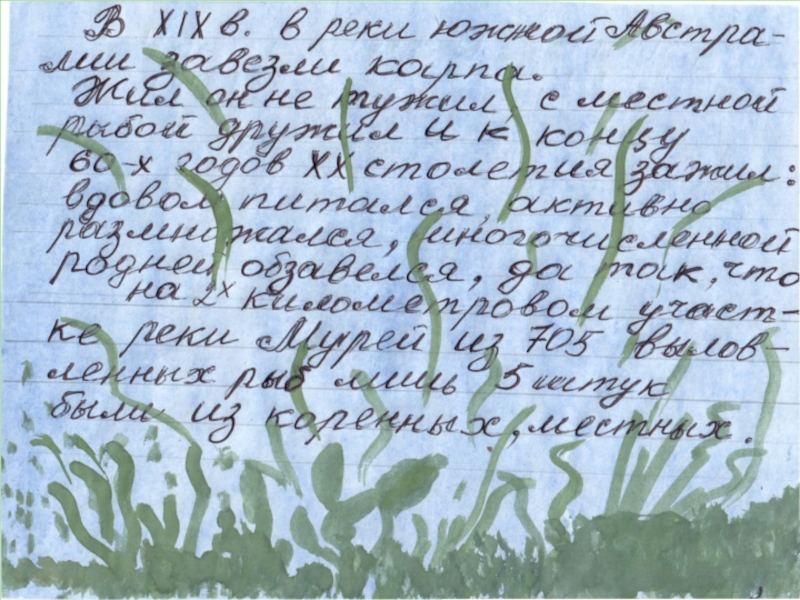 В XIX в. в реки южной Австра-
лии завезли карпа.
Жил он не тужил, с местной
рыбой дружил и к концу
60-х годов XX столетия зажил:
вдовол питался, активно
размножался, многочисленной
родней обзавелся, да так, что
на 2х километровом участ-
ке реки Муррей из 705 вылов-
ленных рыб лишь 5 штук
были из коренных, местных.